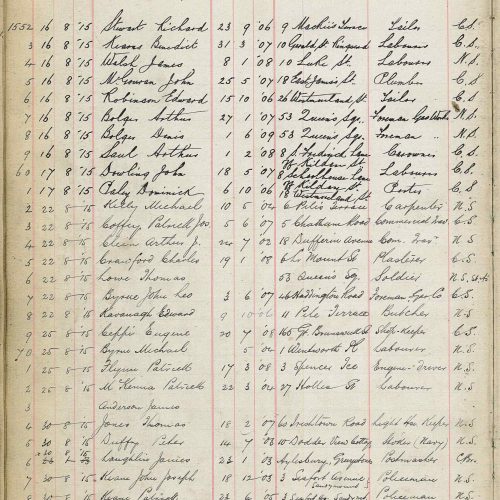 1552 16 8 '15 Stewart Richard 23 9 '06 9 Mackies Tailor C.S.
3 16 8 '15 Kearns Benedict 31 3 '07 10 Labourer C.S.
4 16 8 '15 Walsh James 8 1 '08 10 Luke St. Labourer N.S.
5 16 8 '15 McGowan John 25 5 '07 18 East James St Plumber C.S.
6 16 8 '15 Robinson Edward 15 10 '06 26 Westmoreland St. Tailor C.S.
7 16 8 '15 Bolger Arthur 27 1 '07 53 Queens Sq. Foreman Gas Works N.S.
8 16 8 '15 Bolger Denis 1 6 '09 53 Queens Sq. Foreman N.S.
9 16 8 '15 Saul Arthur 1 2 '08 8 S. Frederick Lane C.S.
60 17 8 '15 Dowling John 18 5 '07 8 Schoolhouse Lane Labourer C.S.
W. Kildare St.
1 17 8 '15 Daley Dominick 6 10 '06 18 Westmoreland St Porter C.S.
2 22 8 '15 Kelly Michael 10 5 '04 6 Terrace Carpenter N.S.
3 22 8 '15 Coffey Patrick Jos 5 6 '07 5 Chatham Road Commercial Trav. C.S.
4 22 8 '15 Arthur J. 24 7 '02 18 Dufferin Avenue Com. Trav. N.S.
5 22 8 '15 Crawford Charles 19 1 '08 6 Lr Mount St Plasterer C.S.
6 22 8 '15 Lowe Thomas 53 Queens Sq. Soldier N.S.
7 22 8 '15 Byrne John Leo 3 6 '07 26 Haddington Road Foreman C.S.
8 22 8 '15 Kavanagh Edward 9 10 '06 11 Terrace Butcher N.S.
9 25 8 '15 Eugene 20 7 '08 165 Gt. Brunswick St Shop-Keeper C.S.
70 25 8 '15 Byrne Michael 5 '04 1 Wentworth Pl Labourer N.S.
1 25 8 '15 Flynn Patrick 17 3 '08 3 Spencer Ter Engine-Driver N.S.
2 25 8 '15 McKenna Patrick 22 3 '04 27 Holles St Labourer N.S.
3 Anderson James
4 30 8 '15 Jones Thomas 18 2 '07 60 Irishtown Road Light Keeper N.S.
5 30 8 '15 Duffy Peter 14 7 '03 10 Dodder View Cottages Stoker (Navy) N.S.
6 30 8 '15 Laughlin James 23 1 '03 Aylesbury,
7 30 8 '15 Keane John Joseph 18 12 '03 3 Seafort Avenue Policeman N.S.
8 30 8 '15 Keane Patrick 23 6 '05 3 Policeman N.S.